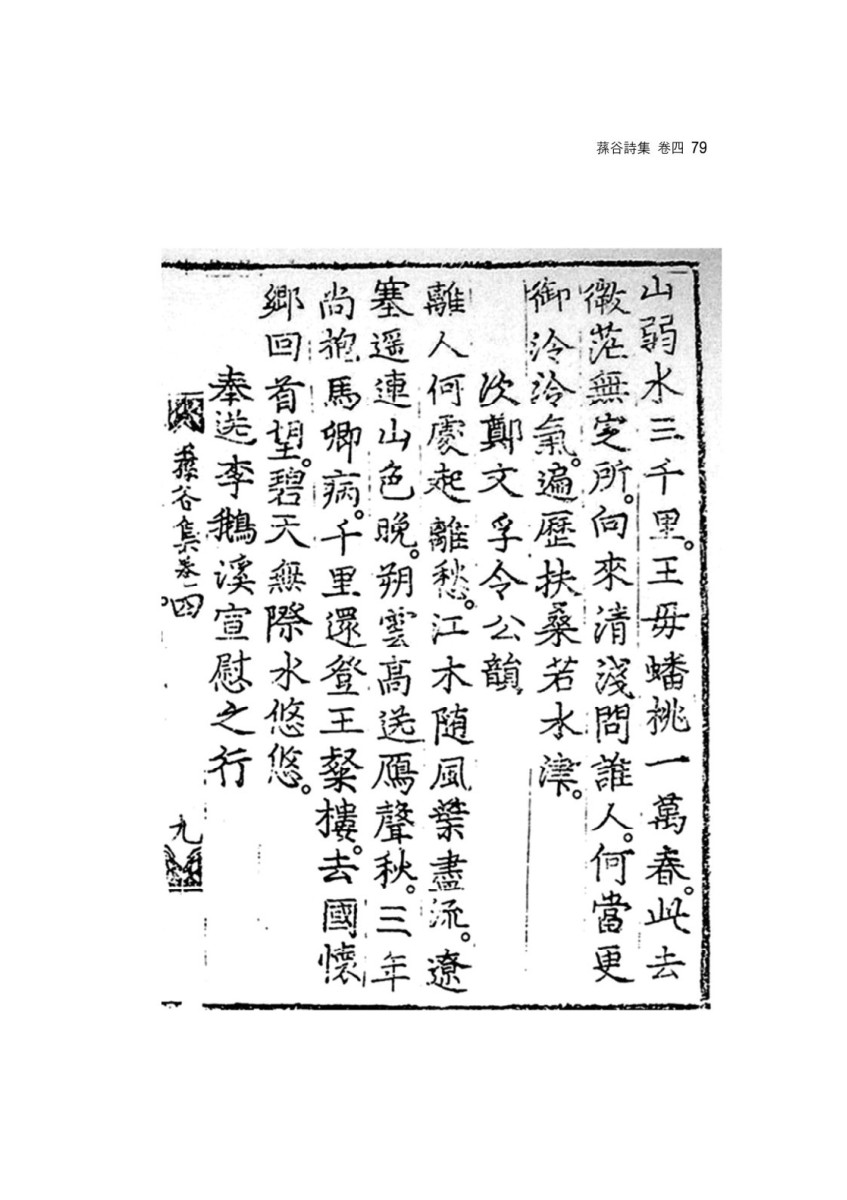 蓀谷詩集 卷四 79
山弱水三千里。王母蟠桃一萬春。此去
微茫無定所。向來清淺問誰人。何當更
御泠泠氣。遍歷扶桑若木津。
次鄭文孚令公韻
離人何處起離愁。江木随風葉盡流。遼
塞遥連山色晚。朔雲高送鴈聲秋。三年
尚抱馬卿病。千里還登王粲樓。去國懷
鄉回首望。碧天無際水悠悠。
奉送李鵝溪宣慰之行
蓀谷集卷四
九